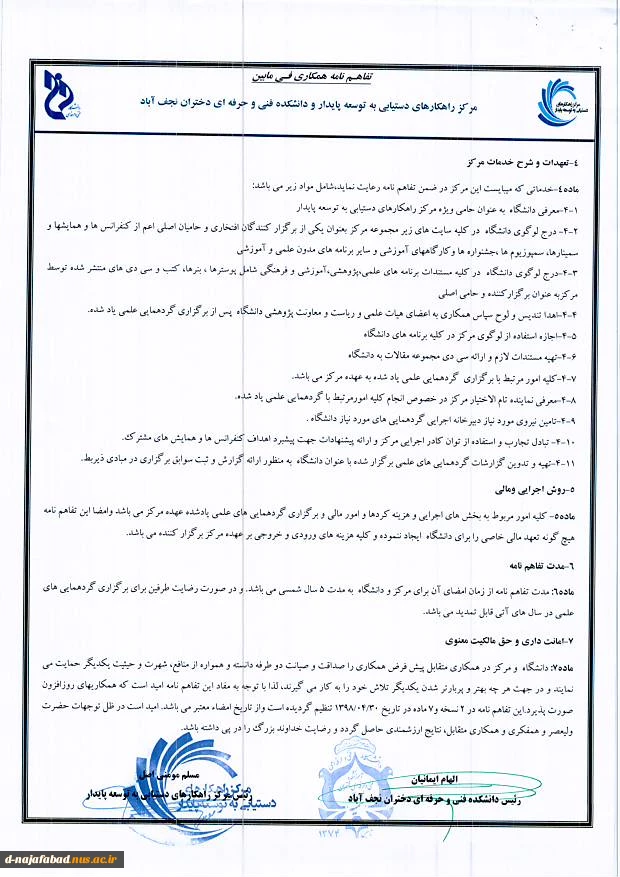 تفاهم نامه همکاری فی مابین
مرکز راهکارهای دستیابی به توسعه پایدار و دانشکده فنی و حرفه ای دختران نجف آباد
مرکز راهکارهای
دستیابی به توسعه پایدار
۴-تعهدات و شرح خدمات مرکز
ماده۴-خدماتی که میبایست این مرکز در ضمن تفاهم نامه رعایت نماید،شامل مواد زیر می باشد:
۴-۱-معرفی دانشگاه به عنوان حامی ویژه مرکز راهکارهای دستیابی به توسعه پایدار
۴-۲- درج لوگوی دانشگاه در کلیه سایت های زیر مجموعه مرکز بعنوان یکی از برگزار کنندگان افتخاری و حامیان اصلی اعم از کنفرانس ها و همایشها و
سمینارها، سمپوزیوم ها ،جشنواره ها وکارگاههای آموزشی و سایر برنامه های مدون علمی و آموزشی
۴-۳-درج لوگوی دانشگاه در کلیه مستندات برنامه های علمی،پژوهشی،آموزشی و فرهنگی شامل پوسترها ، بنرها، کتب و سی دی های منتشر شده توسط
مرکزبه عنوان برگزارکننده و حامی اصلی
۴-۴-اهدا تندیس و لوح سپاس همکاری به اعضای هیات علمی و ریاست و معاونت پژوهشی دانشگاه پس از برگزاری گردهمایی علمی یاد شده.
۴-۵-اجازه استفاده از لوگوی مرکز در کلیه برنامه های دانشگاه
۴-۶-تهیه مستندات لازم و ارائه سی دی مجموعه مقالات به دانشگاه
۴-۷-کلیه امور مرتبط با برگزاری گردهمایی علمی یاد شده به عهده مرکز می باشد.
۴-۸-معرفی نماینده تام الاختیار مرکز در خصوص انجام کلیه امورمرتبط با گردهمایی علمی یاد شده.
۴-۹-تامین نیروی مورد نیاز دبیرخانه اجرایی گردهمایی های مورد نیاز دانشگاه .
۴-۱۰- تبادل تجارب و استفاده از توان کادر اجرایی مرکز و ارائه پیشنهادات جهت پیشبرد اهداف کنفرانس ها و همایش های مشترک.
۴-۱۱-تهیه و تدوین گزارشات گردهمایی های علمی برگزار شده با عنوان دانشگاه به منظور ارائه گزارش و ثبت سوابق برگزاری در مبادی ذیربط.
۵-روش اجرایی ومالی
ماده۵- کلیه امور مربوط به بخش های اجرایی و هزینه کردها و امور مالی و برگزاری گردهمایی های علمی یادشده عهده مرکز می باشد وامضا این تفاهم نامه
هیچ گونه تعهد مالی خاصی را برای دانشگاه ایجاد ننموده و کلیه هزینه های ورودی و خروجی بر عهده مرکز برگزار کننده می باشد.
۶-مدت تفاهم نامه
ماده۶: مدت تفاهم نامه از زمان امضای آن برای مرکز و دانشگاه به مدت ۵ سال شمسی می باشد. و در صورت رضایت طرفین برای برگزاری گردهمایی های
علمی در سال های آتی قابل تمدید می باشد.
۷-امانت داری و حق مالکیت معنوی
ماده۷: دانشگاه و مرکز در همکاری متقابل پیش فرض همکاری را صداقت و صیانت دو طرفه دانسته و همواره از منافع، شهرت و حیثیت یکدیگر حمایت می
نمایند و در جهت هر چه بهتر و پربارتر شدن یکدیگر تلاش خود را به کار می گیرند، لذا با توجه به مفاد این تفاهم نامه امید است که همکاریهای روزافزون
صورت پذیرد.این تفاهم نامه در ۲ نسخه و۷ ماده در تاریخ ۱۳۹۸/۰۴/۳۰ تنظیم گردیده است واز تاریخ امضاء معتبر می باشد. امید است در ظل توجهات حضرت
ولیعصر و همفکری و همکاری متقابل، نتایج ارزشمندی حاصل گردد و رضایت خداوند بزرگ را در پی داشته باشد.
الهام ایمانیان
رئیس دانشکده فنی و حرفه ای دختران نجف آباد
مسلم مومنی اصل
رئیس مرکز راهکارهای دستیابی به توسعه پایدار
مرکز راهکارهای
دستیابی به توسعه پایدار
۱۳۷۴
d-najafabad.nus.ac.ir